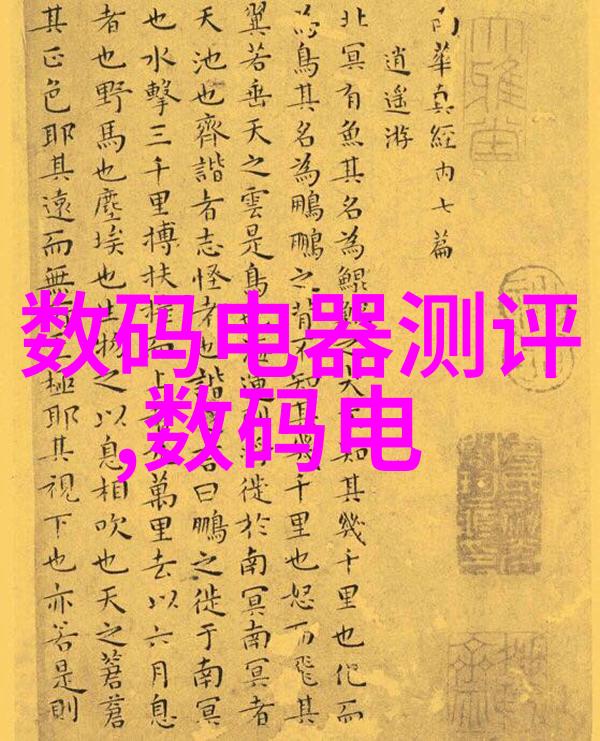 南華真經內七篇
逍遥游
北冥有魚其名為鯤大知其幾千里也化而
為鳥其名為鵬鵬之背不知其幾千里也怒而飛其
翼若垂天之雲是鳥徙於南冥南冥者
天池也齊諧者志怪者也諧曰鵬之徙于南冥
也水擊三千里搏扶搖而上萬里去以六月息
者也野馬也塵埃也生物之以息相吹也天之蒼蒼
其正色耶其遠而無極耶其視下也亦若是則
数码电器测评
,数码电